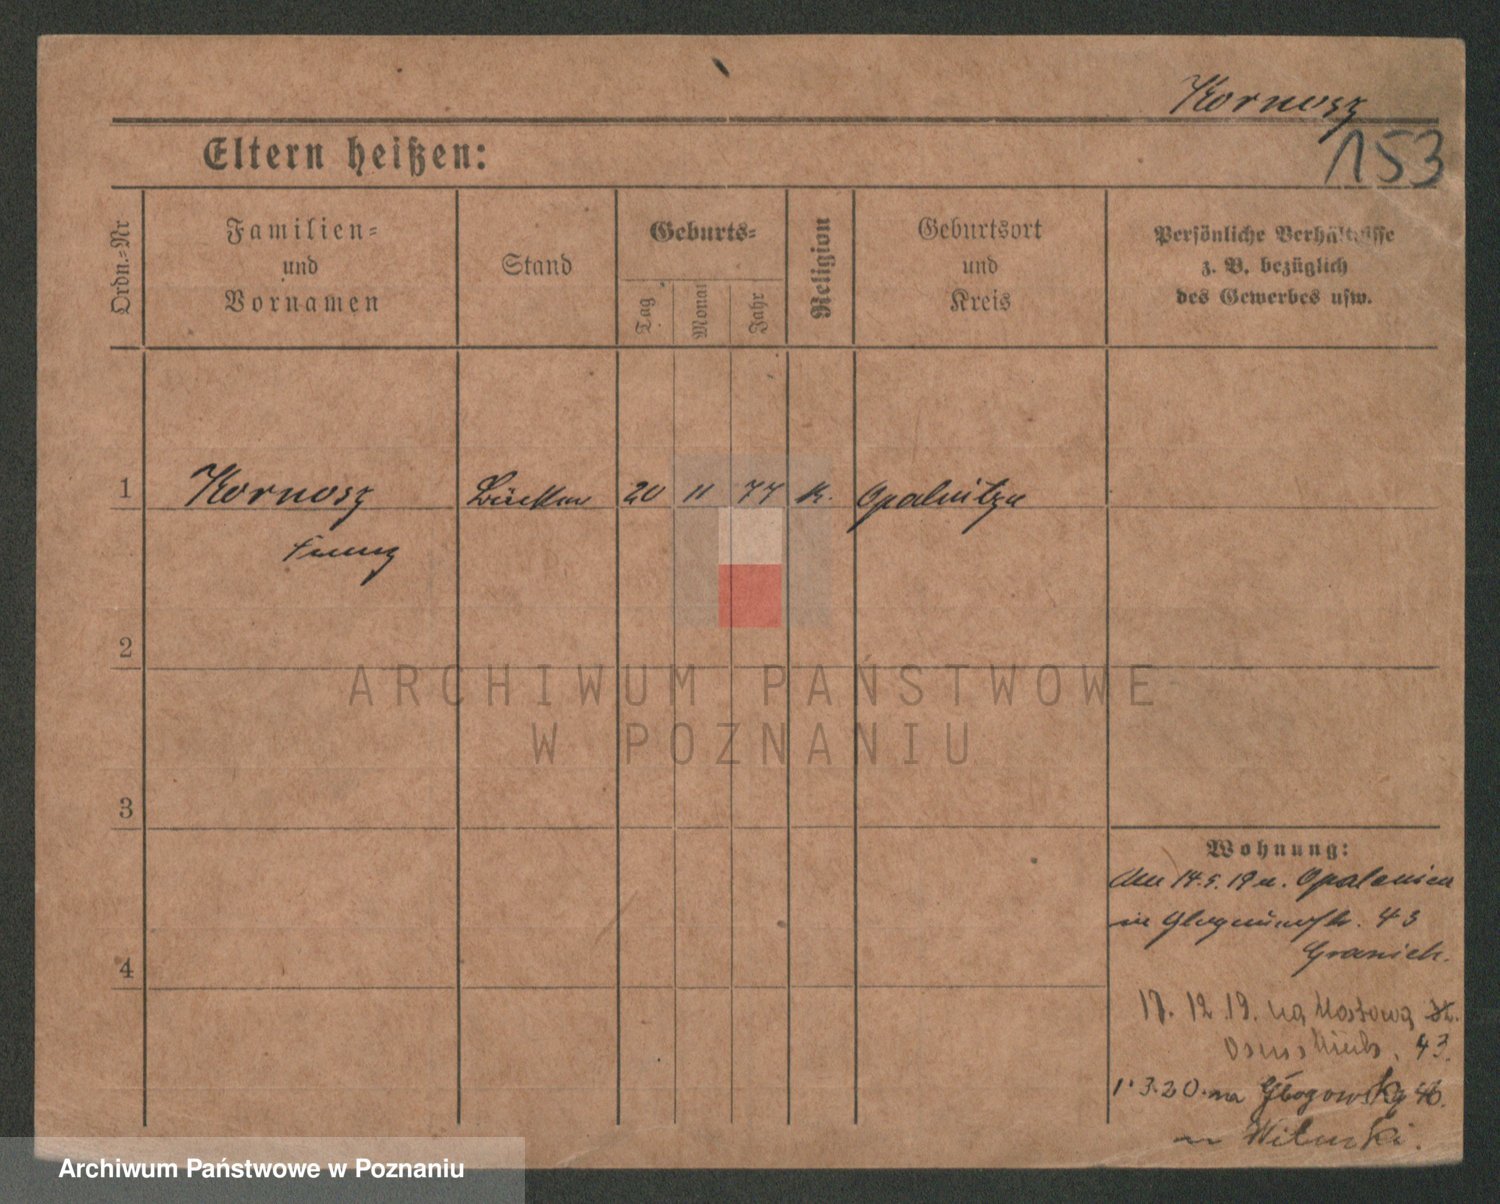 Kornosz
153
Eltern heißen:
Ordn.-Nr
Familien-
und
Vornamen
Stand
Geburts-
Tag
Monat
Jahr
Religion
Geburtsort
und
Kreis
Persönliche Verhältnisse
z. B. bezüglich
des Gewerbes usw.
1 Kornosz 20 11 77 K. Opalnitza
Franz
2
ARCHIWUM PAŃSTWOWE
W POZNANIU
3
Wohnung:
14.5.19 Opalenica
in 43
4
17.12.19. na Mostową
43.
1.3.20. na Głogowską
Archiwum Państwowe w Poznaniu